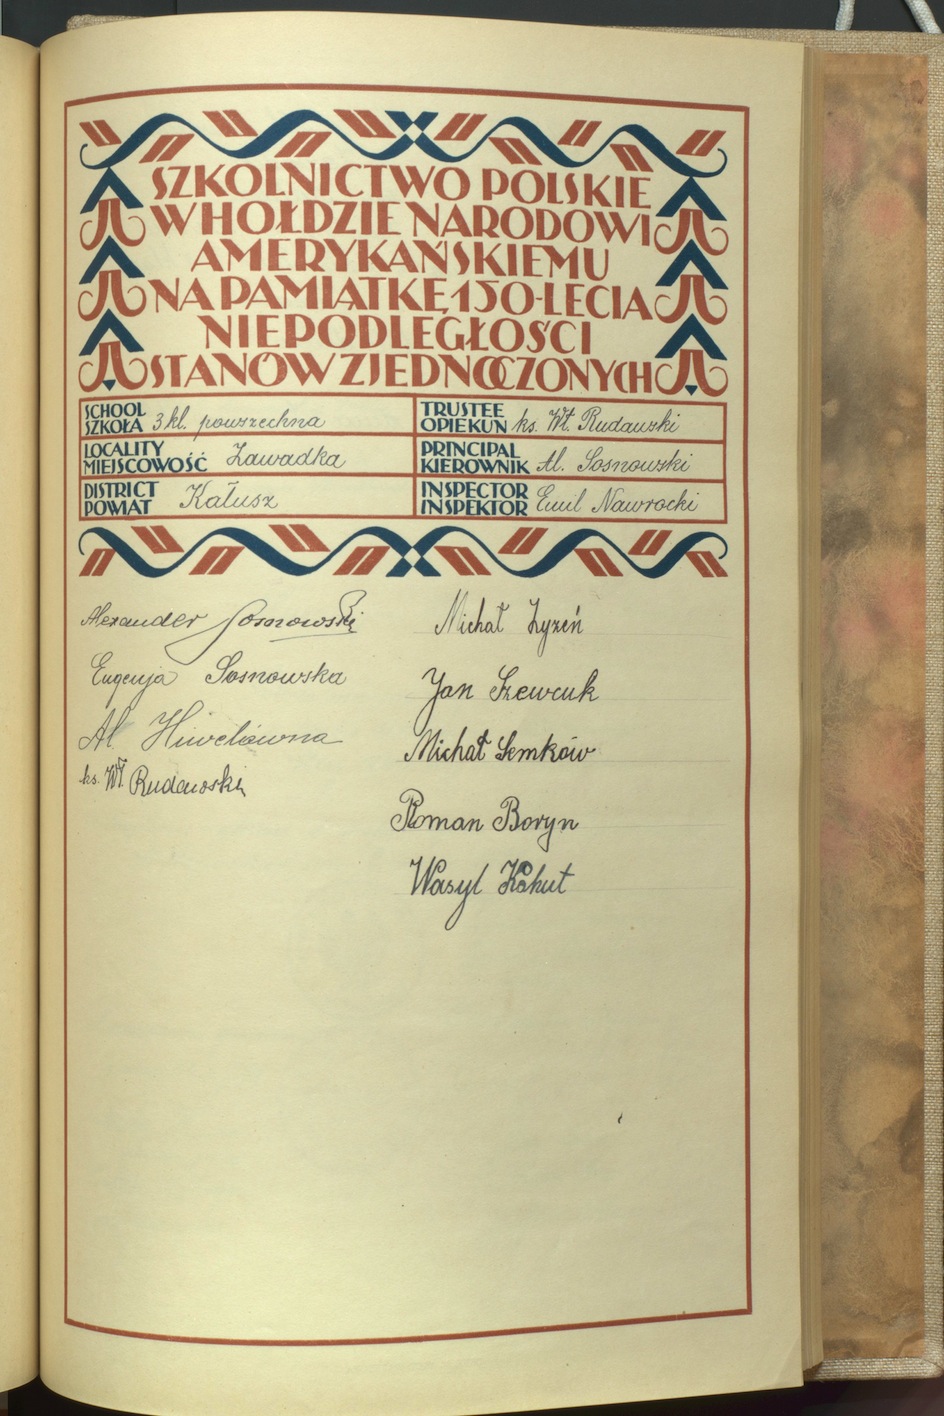 SZKOLNICTWO POLSKIE
W HOŁDZIE NARODOWI
AMERYKAŃSKIEMU
NA PAMIĄTKĘ 150-LECIA
NIEPODLEGŁOŚCI
STANÓW ZJEDNOCZONYCH
SCHOOL
SZKOŁA 3 kl. powszechna
TRUSTEE
OPIEKUN ks. Wł. Rudawski
LOCALITY
MIEJSCOWOŚĆ Zawadka
PRINCIPAL
KIEROWNIK Al. Sosnowski
DISTRICT
POWIAT Kałusz
INSPECTOR
INSPEKTOR Emil Nawrocki
Alexander Sosnowski
Eugenja Sosnowska
Al.
ks. Wł. Rudawski
Michał Zyzeń
Jan Szewcuk
Michał Semków
Roman Boryn
Wasyl Kohut